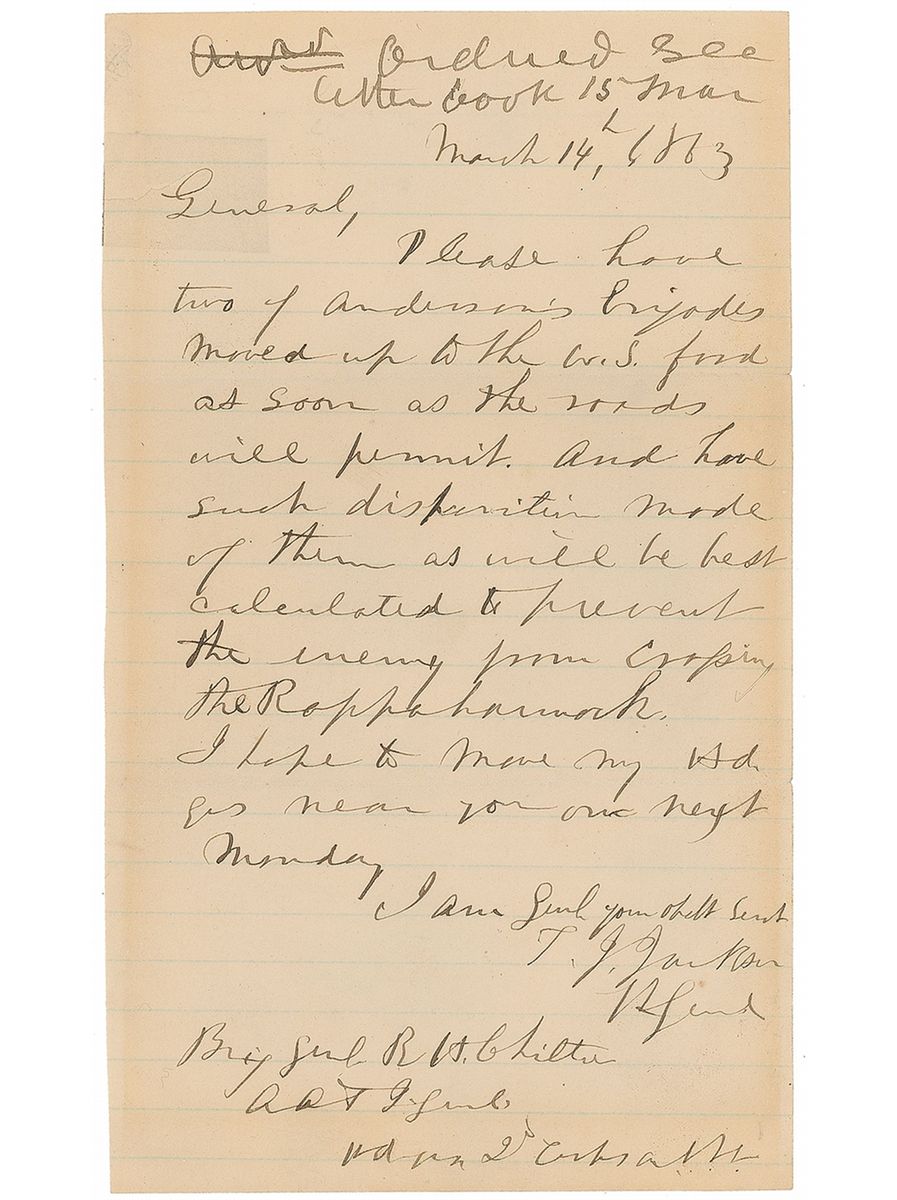 Ordered See
letter book 15 Mar
March 14th, 1863
General,
Please have
two of Anderson's brigades
moved up to the U.S. ford
as soon as the roads
will permit. And have
such disposition made
of them as will be best
calculated to prevent
the enemy from crossing
the Rappahannock.
I hope to move my Hd.
qrs near you on next
Monday
I am Genl your obdt Servt
T. J. Jackson
Lt Genl
Brig Genl R. H. Chilton
A A & I. Genl.
Hd qrs 2d Corps A. N. V.